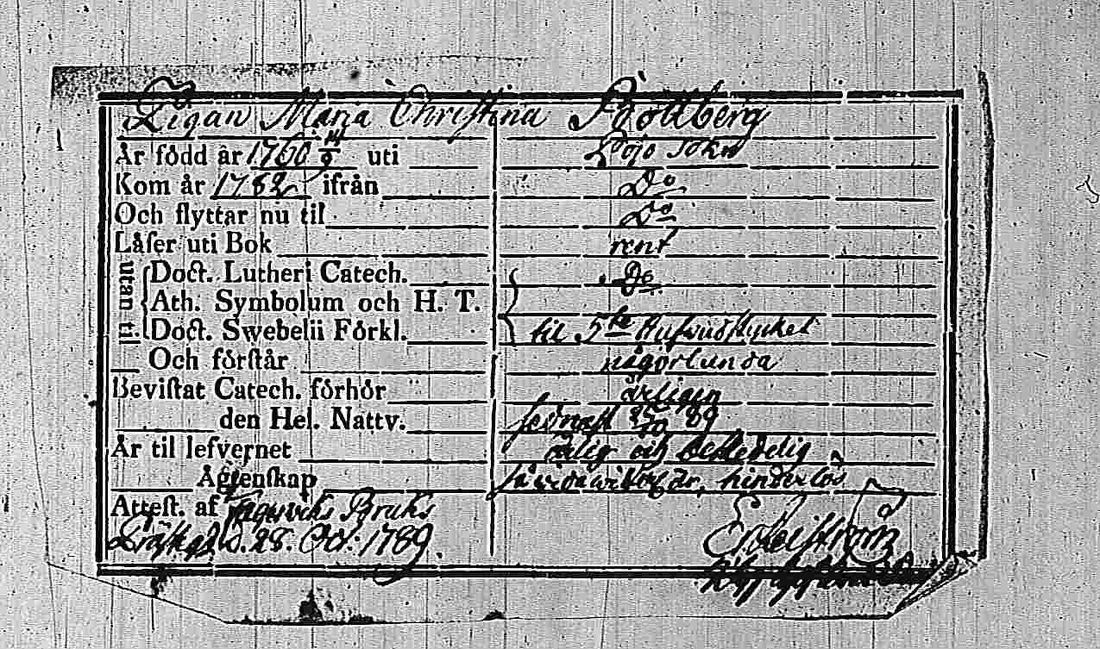 Pigan Maria Christina
År född år 1760 14/9 uti Lojo Sokn
Kom år 1782 ifrån Do
Och flyttar nu til Do
Låser uti Bok rent
utan til
Doct. Lutheri Catech. Do
Ath. Symbolum och H. T.
Doct. Swebelii Förkl. til 5te Hufwudstycket
Och förstår någorlunda
Bevistat Catech. förhör årligen
den Hel. Nattv. sednast 25/10 89
År til lefvernet ärlig och beskedelig
Ägtenskap så wida witterligt är, hinderlös
Attest. af Fagerviks Bruks
d. 28. Oct. 1789.